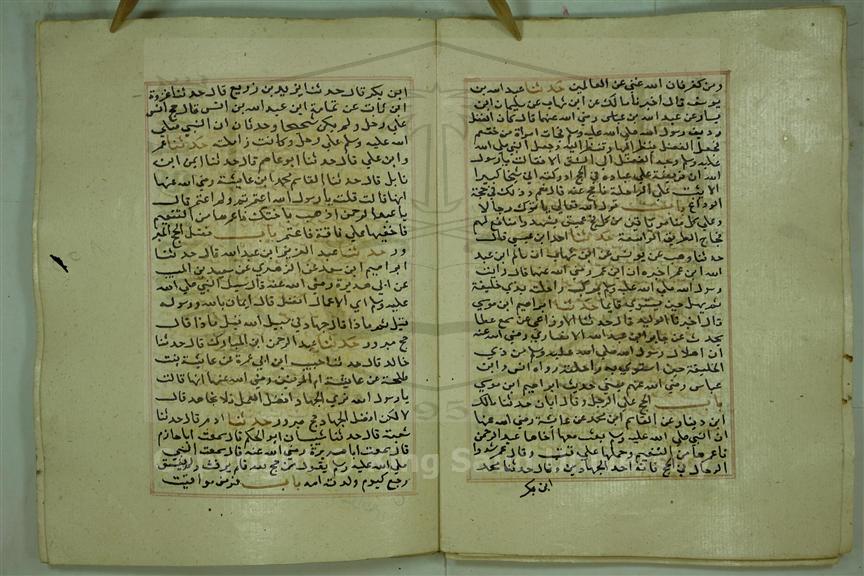 ومن كفر فان الله غني عن العالمين حدثنا عبد الله بن
يوسف قال اخبرنا مالك عن ابن شهاب عن سليمان ابن
يسار عن عبد الله بن عباس رضي الله عنهما قال كان الفضل
رديف رسول الله صلى الله عليه وسلم فجات امراة من خثعم
فجعل الفضل ينظر اليها وتنظر اليه وجعل النبي صلى الله
عليه وسلم يصرف وجه الفضل الى الشق الاخر فقالت يا رسول
الله ان فريضة الله على عباده في الحج ادركت ابي شيخا كبيرا
لا يثبت على الراحلة افاحج عنه قال نعم وذلك في حجة
الوداع باب قول الله تعالى ياتوك رجالا
وعلى كل ضامر ياتين من كل فج عميق ليشهدوا منافع لهم
فجاجا الطرق الواسعة حدثنا احمد ابن عيسى قال
حدثنا وهب عن يونس عن ابن شهاب ان سالم ابن عبد
الله ابن عمر اخبره ان ابن عمر رضي الله عنهما قال رايت
رسول الله صلى الله عليه وسلم يركب راحلته بذي الحليفة
ثم يهل حين تستوي قائما حدثنا ابراهيم ابن موسى
قال اخبرنا الوليد قال حدثنا الاوزاعي عن سمع عطا
يحدث عن جابر ابن عبد الله الانصاري رضي الله عنه
ان اهلال رسول الله صلى الله عليه وسلم من ذي
الحليفة حين استوت به راحلته رواه انس وابن
عباس رضي الله عنهم يعني حديث ابراهيم ابن موسى
باب الحج على الرحل وقال ابان حدثنا مالك
ابن دينار عن القاسم ابن محمد عن عائشة رضي الله عنها
ان النبي صلى الله عليه وسلم بعث معها اخاها عبد الرحمن
فاعمرها من التنعيم وحملها على قتب وقال عمر شدوا
الرحال في الحج فانه احد الجهادين وقال حدثنا محمد
ابن بكر
ابن بكر قال حدثنا يزيد بن زريع قال حدثنا عزرة
ابن ثابت عن ثمامة ابن عبد الله بن انس قال حج انس
على رحل ولم يكن شحيحا وحدث ان النبي صلى
الله عليه وسلم حج على رحل وكانت زاملته حدثنا عمر
وابن علي قال حدثنا ابو عاصم قال حدثنا ايمن ابن
نابل قال حدثنا القاسم محمد ابن عائشة رضي الله عنها
انها قالت قلت يا رسول الله اعتمرتم ولم اعتمر قال
يا عبد الرحمن اذهب باختك فاعمرها من التنعيم
فاحقبها على ناقة فاعتمرت باب فضل الحج المبر
ور حدثنا عبد العزيز ابن عبد الله قال حدثنا
ابراهيم ابن سعد عن الزهري عن سعيد بن المسيب
عن ابي هريرة رضي الله عنه قال سئل النبي صلى الله
عليه وسلم اي الاعمال افضل قال ايمان بالله ورسوله
قيل ثم ماذا قال جهاد في سبيل الله قيل ثم ماذا قال
حج مبرور حدثنا عبد الرحمن ابن المبارك قال حدثنا
خالد قال حدثنا حبيب ابن ابي عمرة عن عائشة بنت
طلحة عن عائشة ام المؤمنين رضي الله عنها انها قالت
يا رسول الله نرى الجهاد افضل العمل افلا نجاهد قال
لا لكن افضل الجهاد حج مبرور حدثنا ادم قال حدثنا
شعبة قال حدثنا سيار ابو الحكم قال سمعت ابا حازم
قال سمعت ابا هريرة رضي الله عنه قال سمعت النبي
صلى الله عليه وسلم يقول من حج لله فلم يرفث ولم يفسق
رجع كيوم ولدته امه باب فرض مواقيت